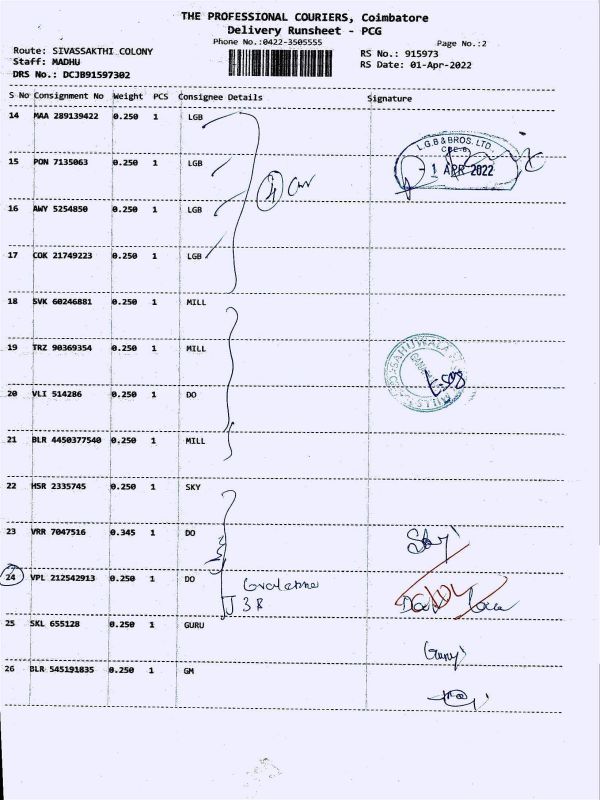 THE PROFESSIONAL COURIERS, Coimbatore
Delivery Runsheet - PCG
Phone No.:0422-3505555
Page No.:2
Route: SIVASSAKTHI COLONY
RS No.: 915973
Staff: MADHU
RS Date: 01-Apr-2022
DRS No.: DCJB91597302
S No Consignment No Weight PCS Consignee Details Signature
14 MAA 289139422 0.250 1 LGB
L.G.B & BROS. LTD.,
15 PON 7135063 0.250 1 LGB
- 1 APR 2022
16 AWY 5254850 0.250 1 LGB
17 COK 21749223 0.250 1 LGB
18 SVK 60246881 0.250 1 MILL
19 TRZ 90369354 0.250 1 MILL
20 VLI 514286 0.250 1 DO
21 BLR 4450377540 0.250 1 MILL
22 HSR 2335745 0.250 1 SKY
23 VRR 7047516 0.345 1 DO
24 VPL 212542913 0.250 1 DO
25 SKL 655128 0.250 1 GURU
26 BLR 545191835 0.250 1 GM